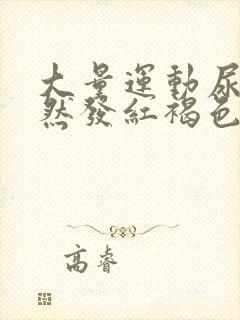 大量運動尿
然發紅褐色
高睿